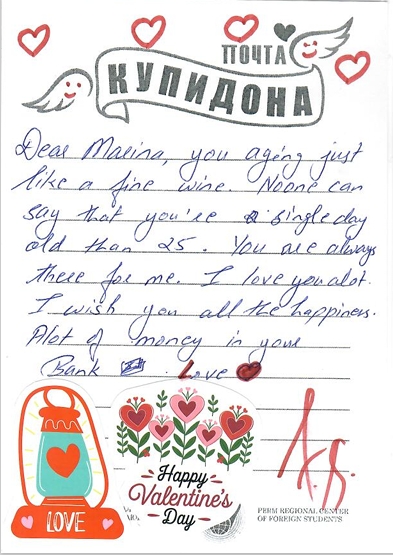 ПОЧТА
КУПИДОНА
Dear Marina, you aging just
like a fine wine. Noone can
say that you're a single day
old than 25. You are always
there for me. I love you alot.
I wish you all the happiness.
Alot of money in your
Bank Love
LOVE
Happy
Valentine's
Day
PERM REGIONAL CENTER
OF FOREIGN STUDENTS